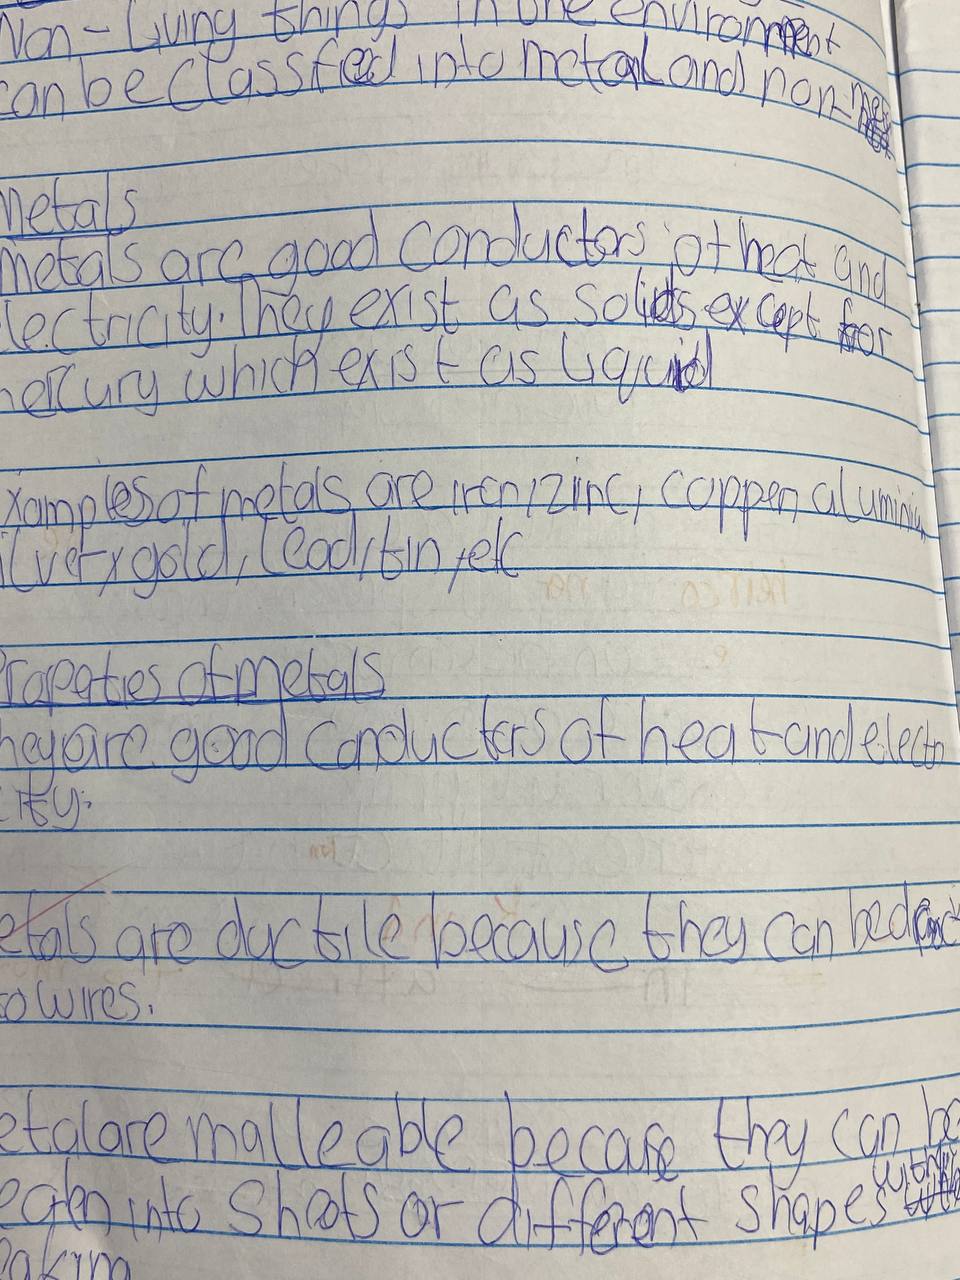 Non-Living things in the environment
can be classified into metal and non-
Metals
Metals are good conductors of heat and
lectricity. They exist as solids except for
ercury which exist as Liquid
xamples of metals are iron, zinc, copper, alumini
ilver, gold, Lead, tin, etc
Properties of metals
hey are good conductors of heat and electr
city.
etals are ductile because they can be
to wires.
etal are malleable becase they can be
eaten into sheets or different shapes with
eaking